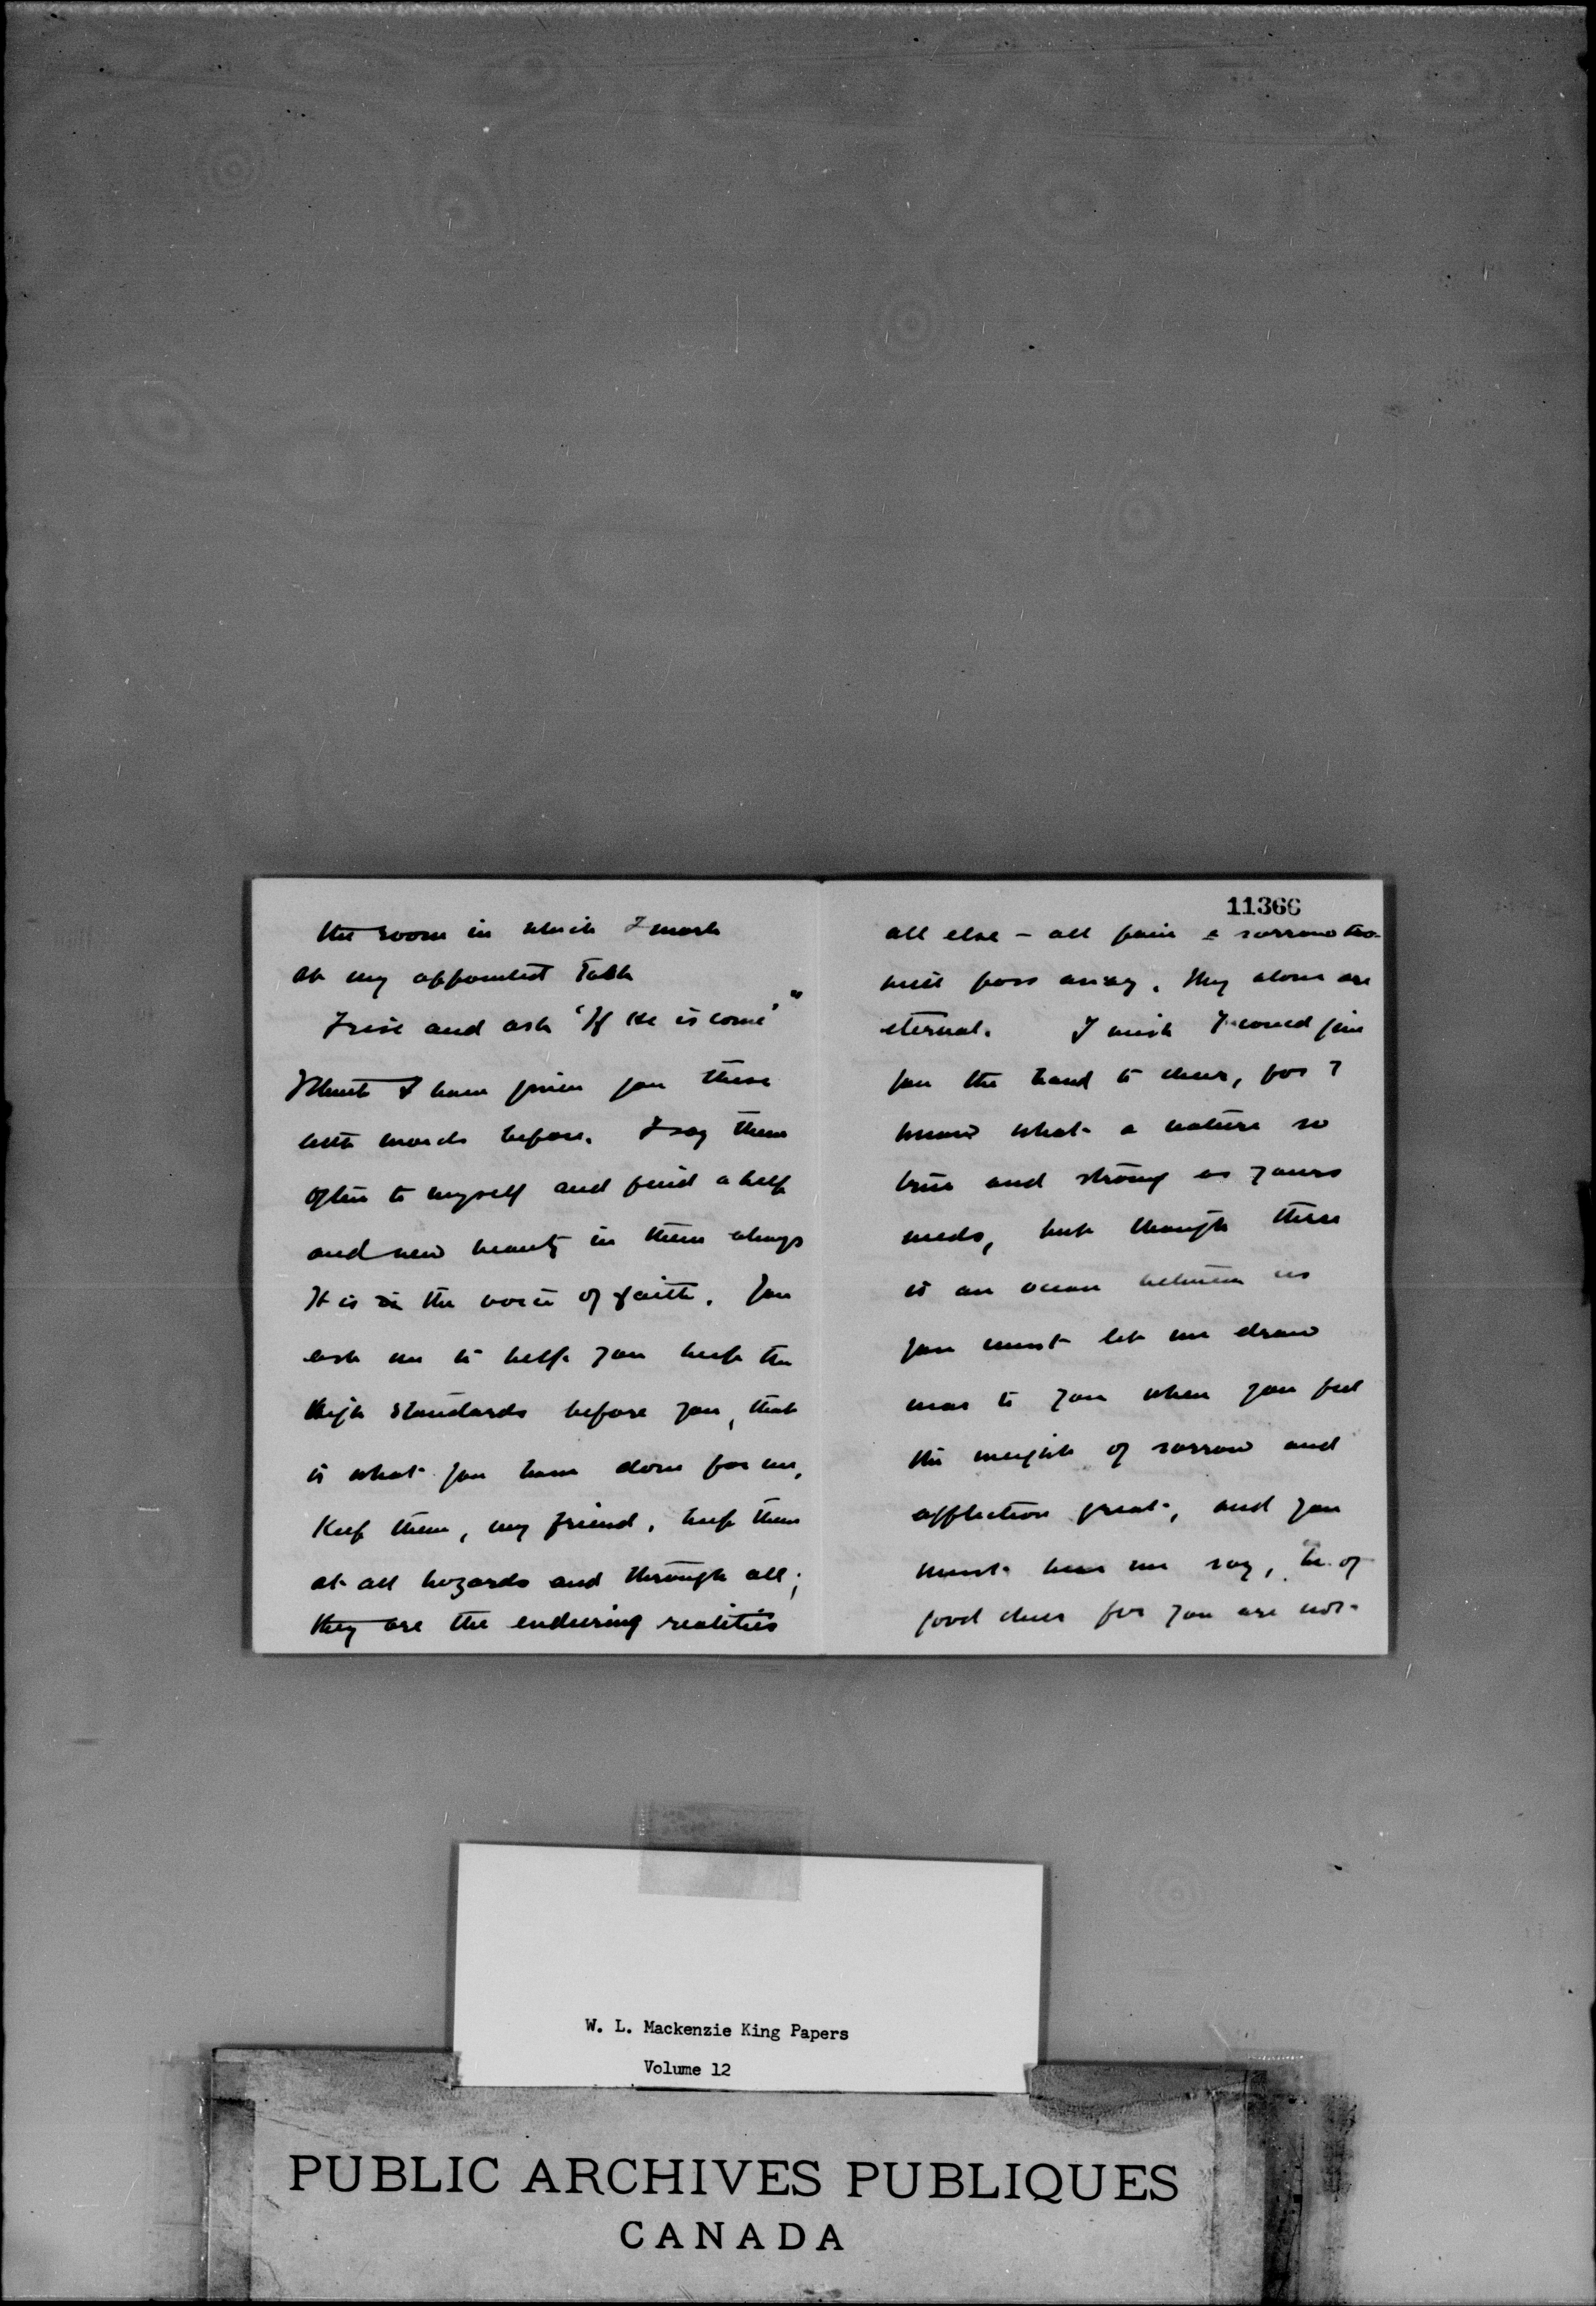 the room in which I work
at my appointed Task
I rise and ask 'If He is come'"
I think I have given you these
words before. I say them
often to myself and find a help
and new beauty in them always
It is in the voice of faith. You
ask me to help you keep the
high standards before you, that
is what you have done for me,
Keep them, my friend, keep them
at all hazards and through all;
they are the enduring realities
11366
all else - all pain & sorrow too
will pass away. They alone are
eternal. I wish I could give
you the hand to cheer, for I
know what a nature so
true and strong as yours
needs, but though there
is an ocean between us
you must let me draw
near to you when you feel
the weight of sorrow and
affliction great, and you
must hear me say, be of
good cheer for you are not
W. L. Mackenzie King Papers
Volume 12
PUBLIC ARCHIVES PUBLIQUES
CANADA